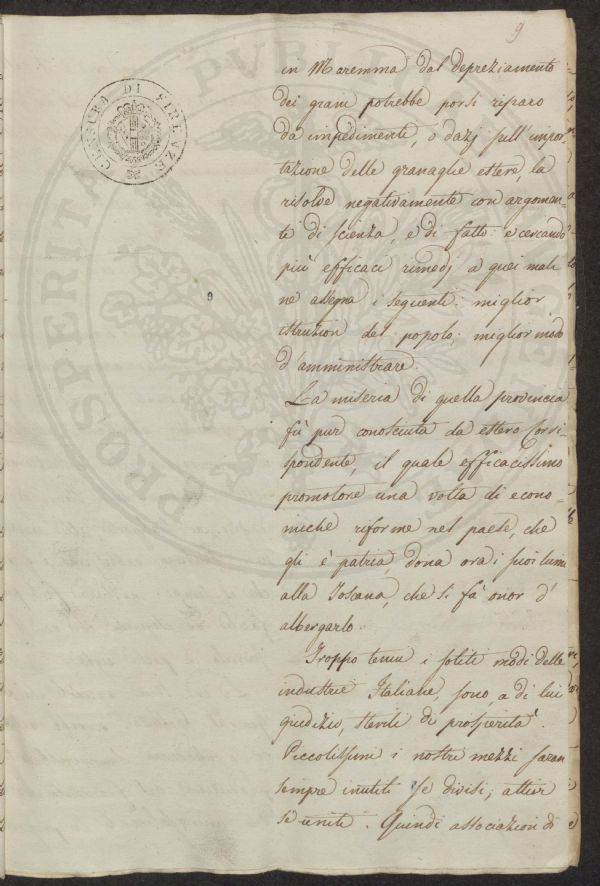 9
CENSURA DI FIRENZE
PROSPERITÀ PUBLI
in Maremma dal depreziamento
dei grani potrebbe porsi riparo
da impedimenti, o dazj sull'impor-
tazione delle granaglie estere la
risolve negativamente con argomen-
ti di scienza, e di fatto: e cercando
più efficaci rimedj a quei mali
ne assegna i seguenti: miglior
istruzion del popolo: miglior modo
d'amministrare.
La miseria di quella provincia
fù pur conosciuta da estero Corri-
spondente, il quale efficacissimo
promotore una volta di econo-
miche riforme nel paese, che
gli è patria, dona ora i suoi lumi
alla Toscana, che si fà onor d'
albergarlo.
Troppo tenui i soliti modi delle
industrie Italiane, sono, a di lui
giudizio, sterili di prosperità.
Piccolissimi i nostri mezzi saran
sempre inutili se divisi; attivi
se uniti. Quindi associazioni di